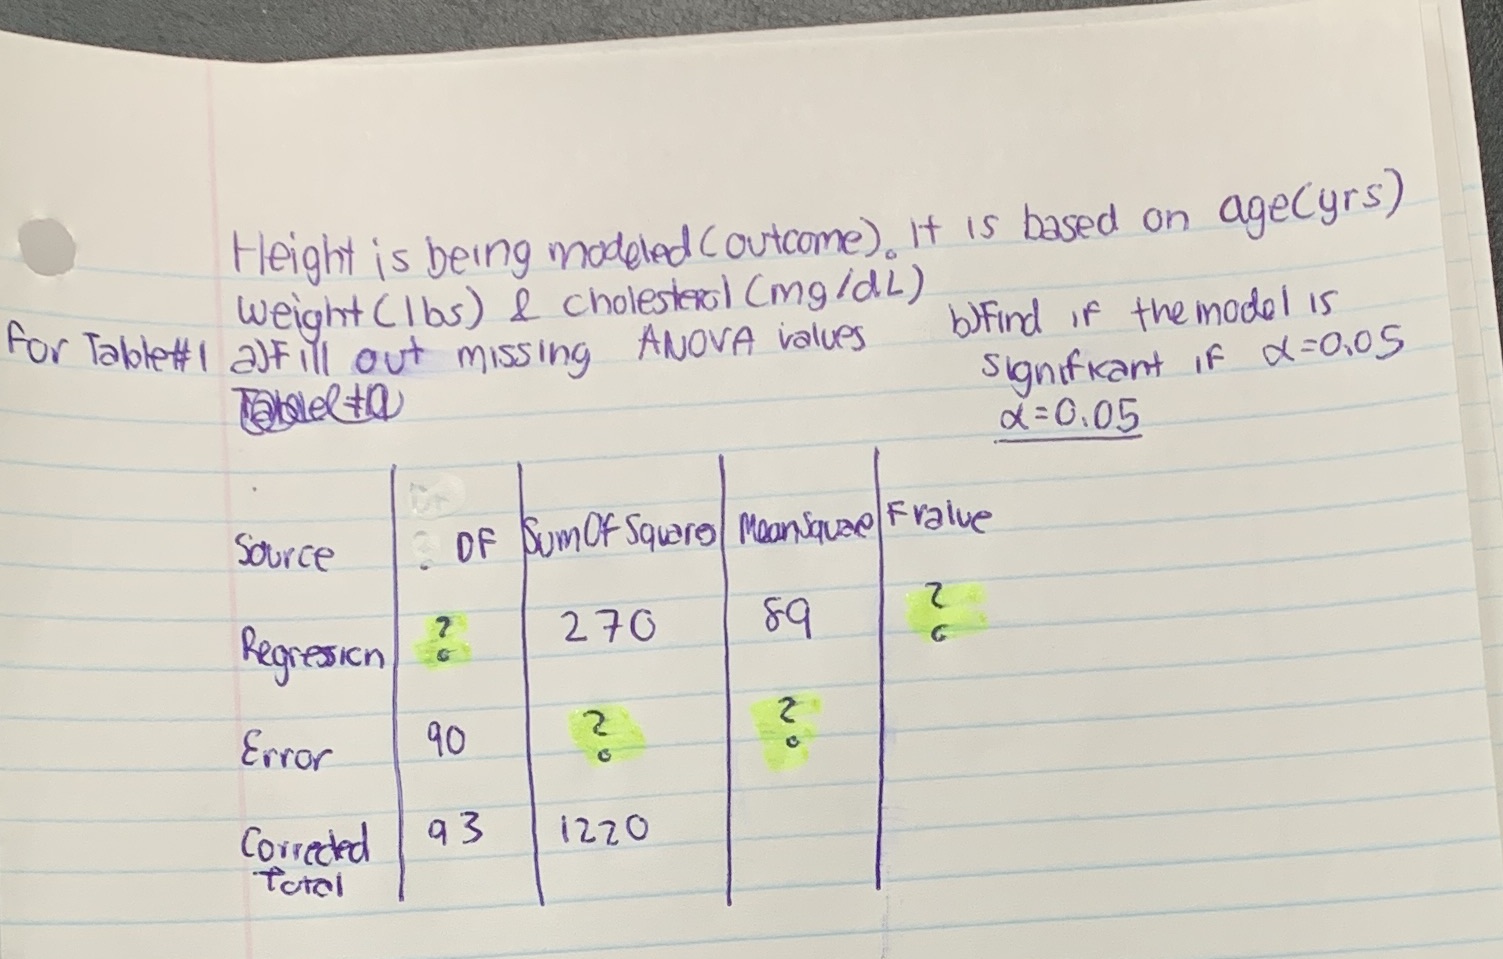 Height is being modeled (outcome). It is based on age (yrs)
weight (lbs) & cholesterol (mg/dL)
For Table#1 a) Fill out missing ANOVA values
b) Find if the model is
significant if α=0.05
α=0.05
Source DF Sum Of Squares Mean Square F value
Regression ? 270 89 ?
Error 90 ? ?
Corrected 93 1220
Total